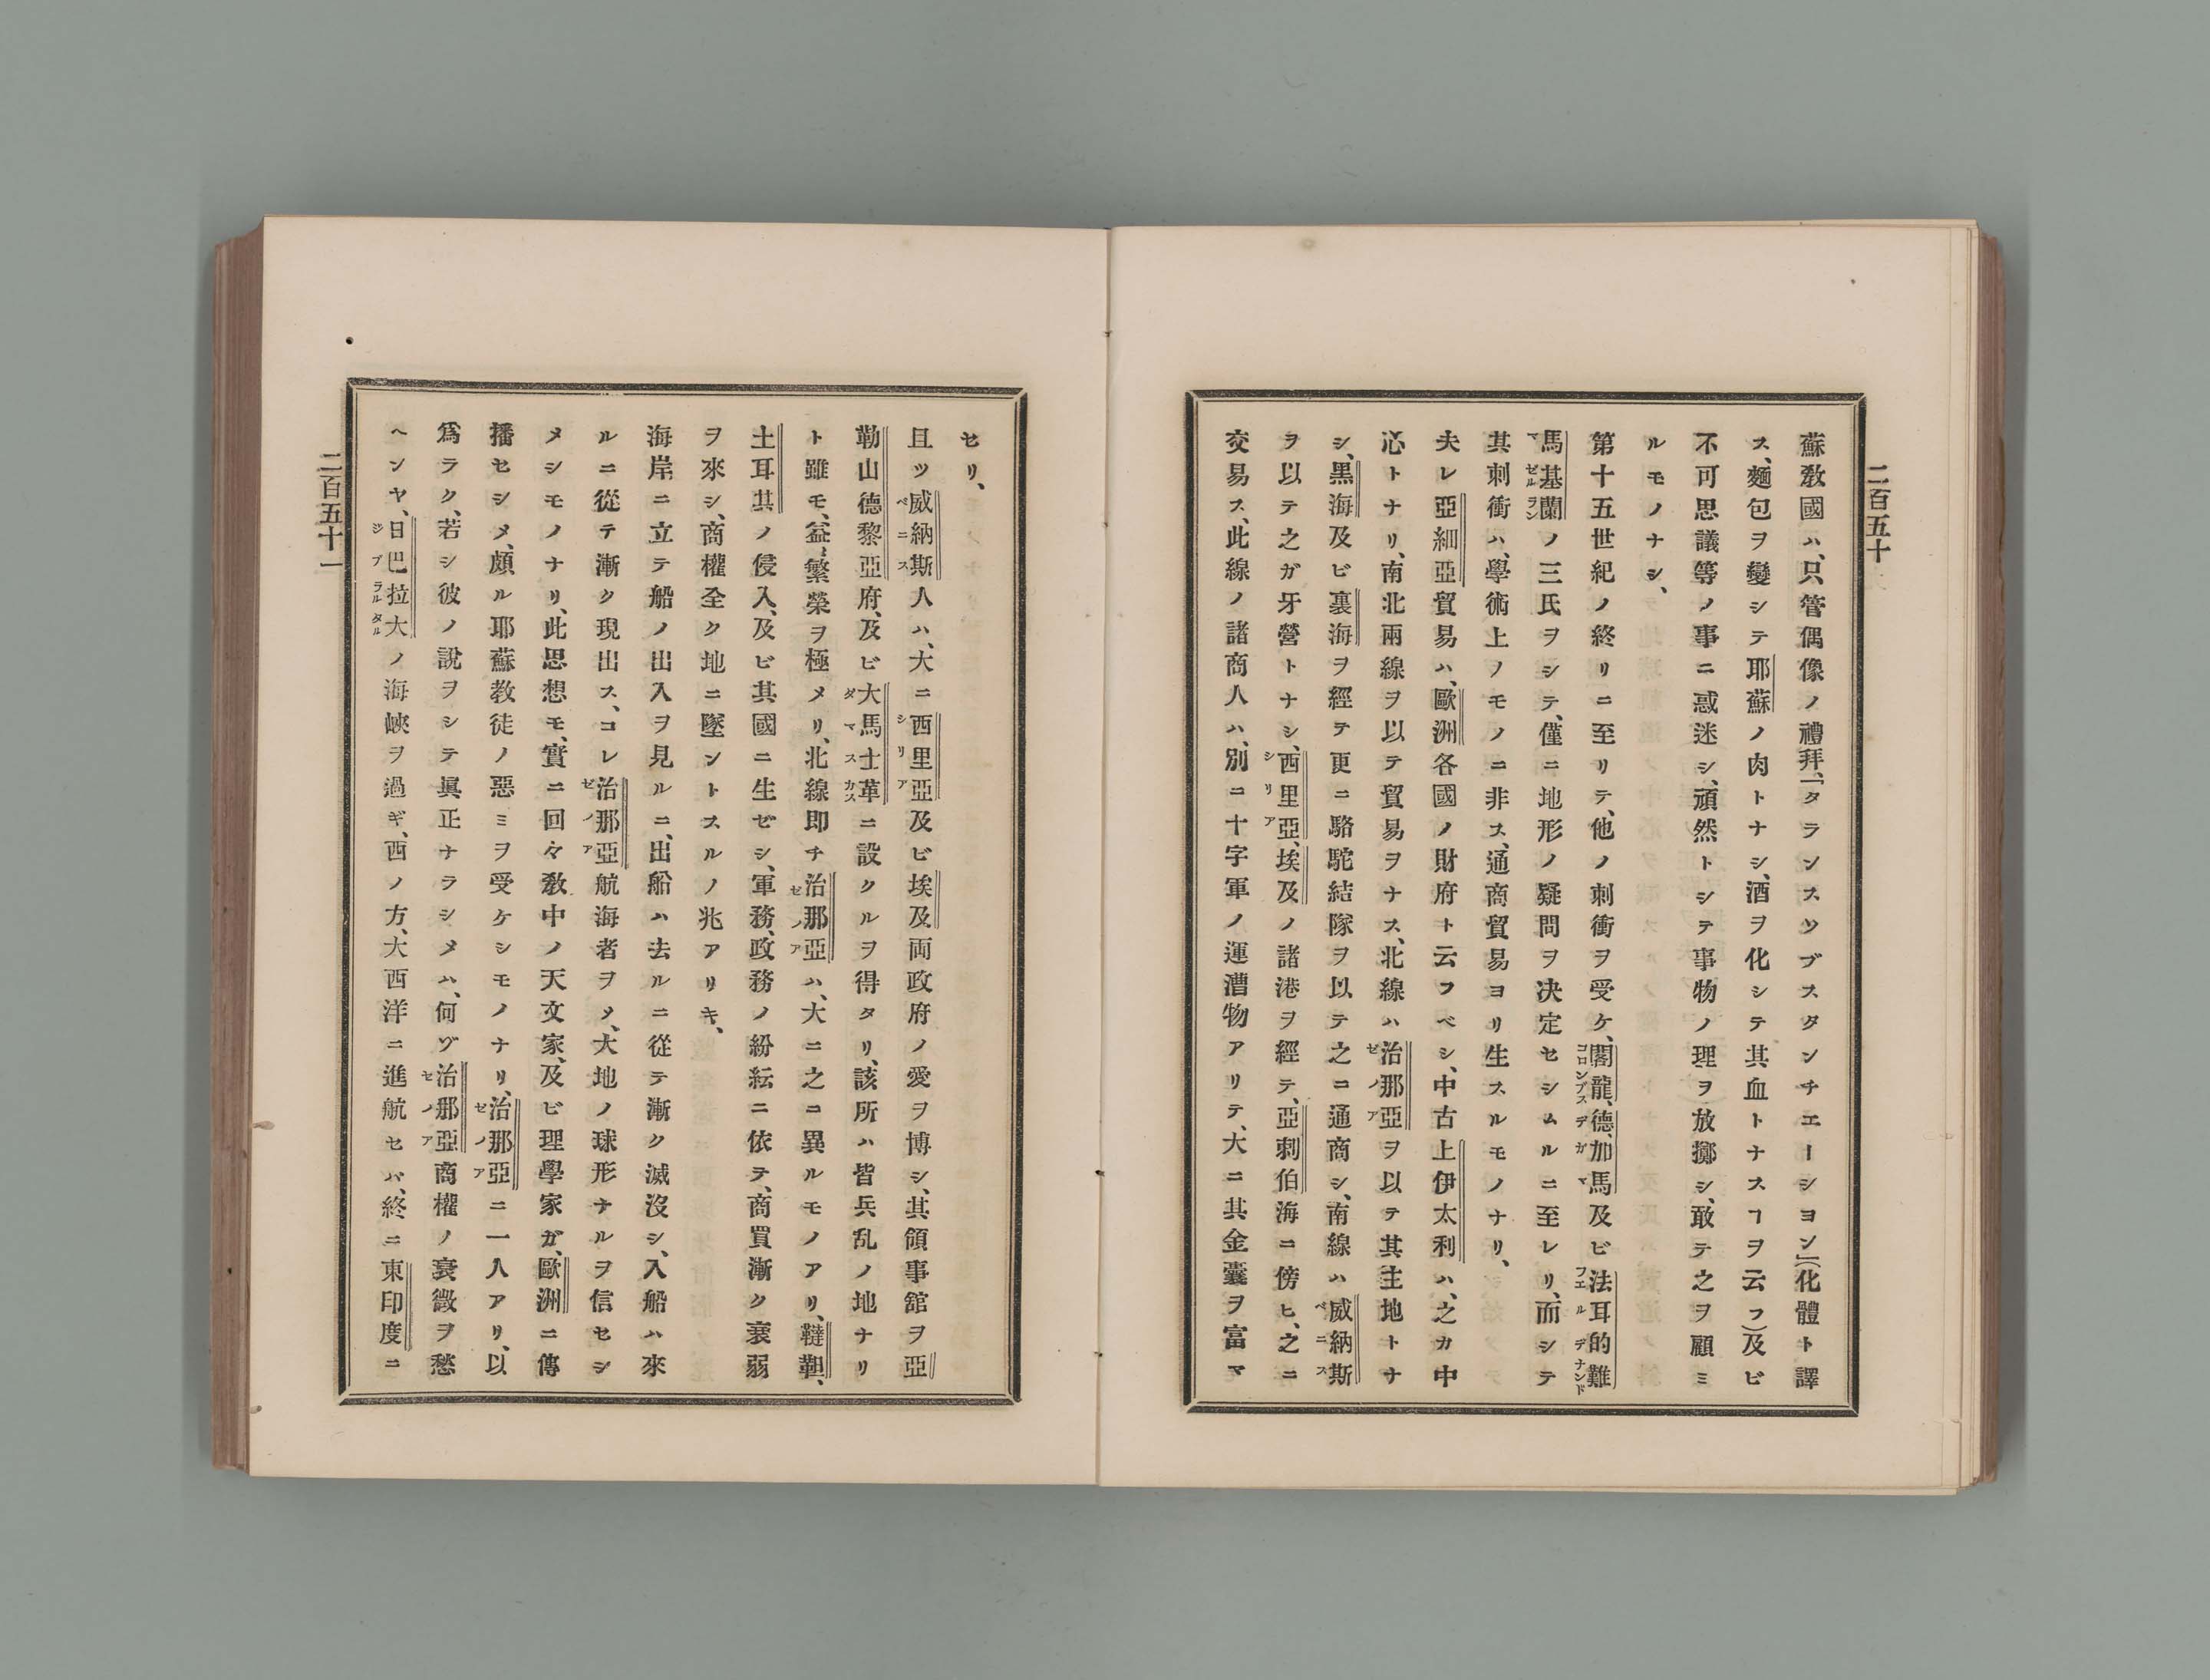 二百五十
蘇教國ハ、只管偶像ノ禮拜、「タランスツブスタンチエーシヨン」(化體ト譯
ス、麵包ヲ變シテ耶蘇ノ肉トナシ、酒ヲ化シテ其血トナスヿヲ云フ)及ビ
不可思議等ノ事ニ惑迷シ、頑然トシテ事物ノ理ヲ放擲シ、敢テ之ヲ顧ミ
ルモノナシ、
第十五世紀ノ終リニ至リテ、他ノ刺衝ヲ受ケ、閣龍、德、加馬及ビ法耳的難
コロンブス デ ガマ フエルデナンド
馬基蘭ノ三氏ヲシテ、僅ニ地形ノ疑問ヲ决定セシムルニ至レリ、而シテ
マゼルラン
其刺衝ハ、學術上ノモノニ非ス、通商貿易ヨリ生スルモノナリ、
夫レ亞細亞貿易ハ、歐洲各國ノ財府ト云フベシ、中古上伊太利ハ、之カ中
心トナリ、南北兩線ヲ以テ貿易ヲナス、北線ハ治那亞ヲ以テ其主地トナ
ゼノア
シ、黑海及ビ裏海ヲ經テ更ニ駱駝結隊ヲ以テ之ニ通商シ、南線ハ威納斯
ベニス
ヲ以テ之ガ牙營トナシ、西里亞、埃及ノ諸港ヲ經テ、亞刺伯海ニ傍ヒ、之ニ
シリア
交易ス、此線ノ諸商人ハ、別ニ十字軍ノ運漕物アリテ、大ニ其金囊ヲ富マ
セリ、
且ツ威納斯人ハ、大ニ西里亞及ビ埃及両政府ノ愛ヲ博シ、其領事舘ヲ亞
ベニス シリア
勒山德黎亞府、及ビ大馬士革ニ設クルヲ得タリ、該所ハ皆兵乱ノ地ナリ
ダマスカス
ト雖モ、益〻繁榮ヲ極メリ、北線即チ治那亞ハ、大ニ之ニ異ルモノアリ、韃靼、
ゼノア
土耳其ノ侵入、及ビ其國ニ生ゼシ、軍務、政務ノ紛紜ニ依テ、商買漸ク衰弱
ヲ來シ、商權全ク地ニ墜ントスルノ兆アリキ、
海岸ニ立テ船ノ出入ヲ見ルニ、出船ハ去ルニ從テ漸ク滅沒シ、入船ハ來
ルニ從テ漸ク現出ス、コレ治那亞航海者ヲメ、大地ノ球形ナルヲ信セシ
ゼノア
メシモノナリ、此思想モ、實ニ回々敎中ノ天文家、及ビ理學家ガ、歐洲ニ傳
播セシメ、頗ル耶蘇教徒ノ惡ミヲ受ケシモノナリ、治那亞ニ一人アリ、以
ゼノア
爲ラク、若シ彼ノ說ヲシテ眞正ナラシメハ、何ゾ治那亞商權ノ衰微ヲ愁
ゼノア
ヘンヤ、日巴拉大ノ海峽ヲ過ギ、西ノ方、大西洋ニ進航セバ、終ニ東印度ニ
ジブラルタル
二百五十一